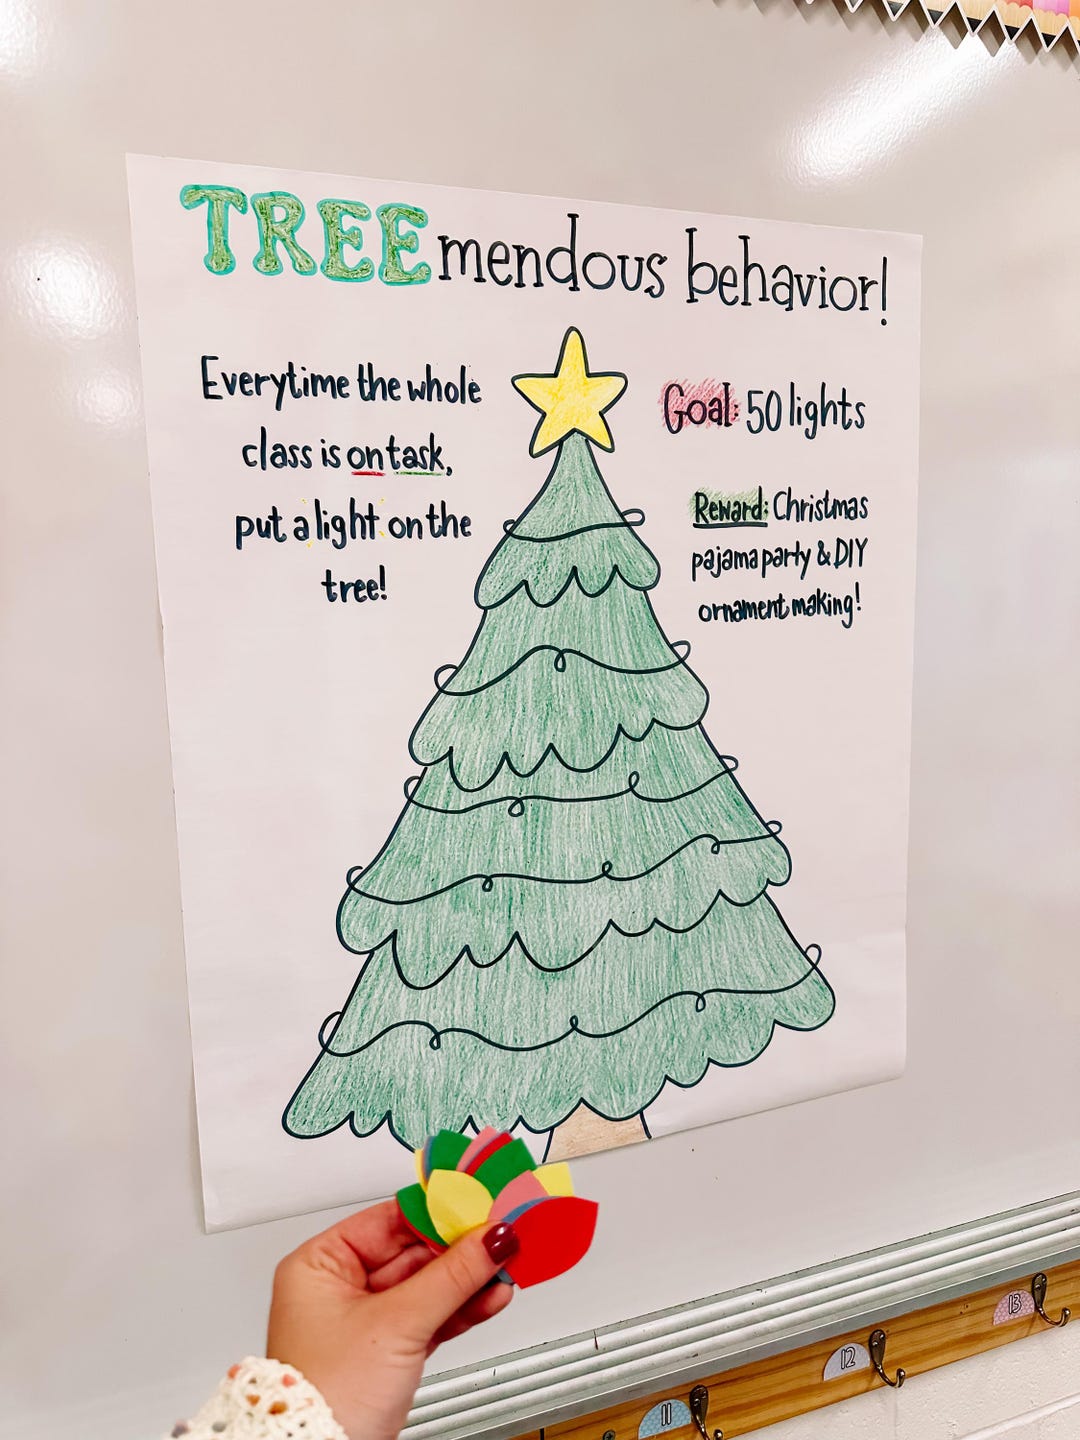 TREEmendous behavior!
Everytime the whole
class is on task,
put a light on the
tree!
Goal: 50 lights
Reward: Christmas
pajama party & DIY
ornament making!
11
12
13